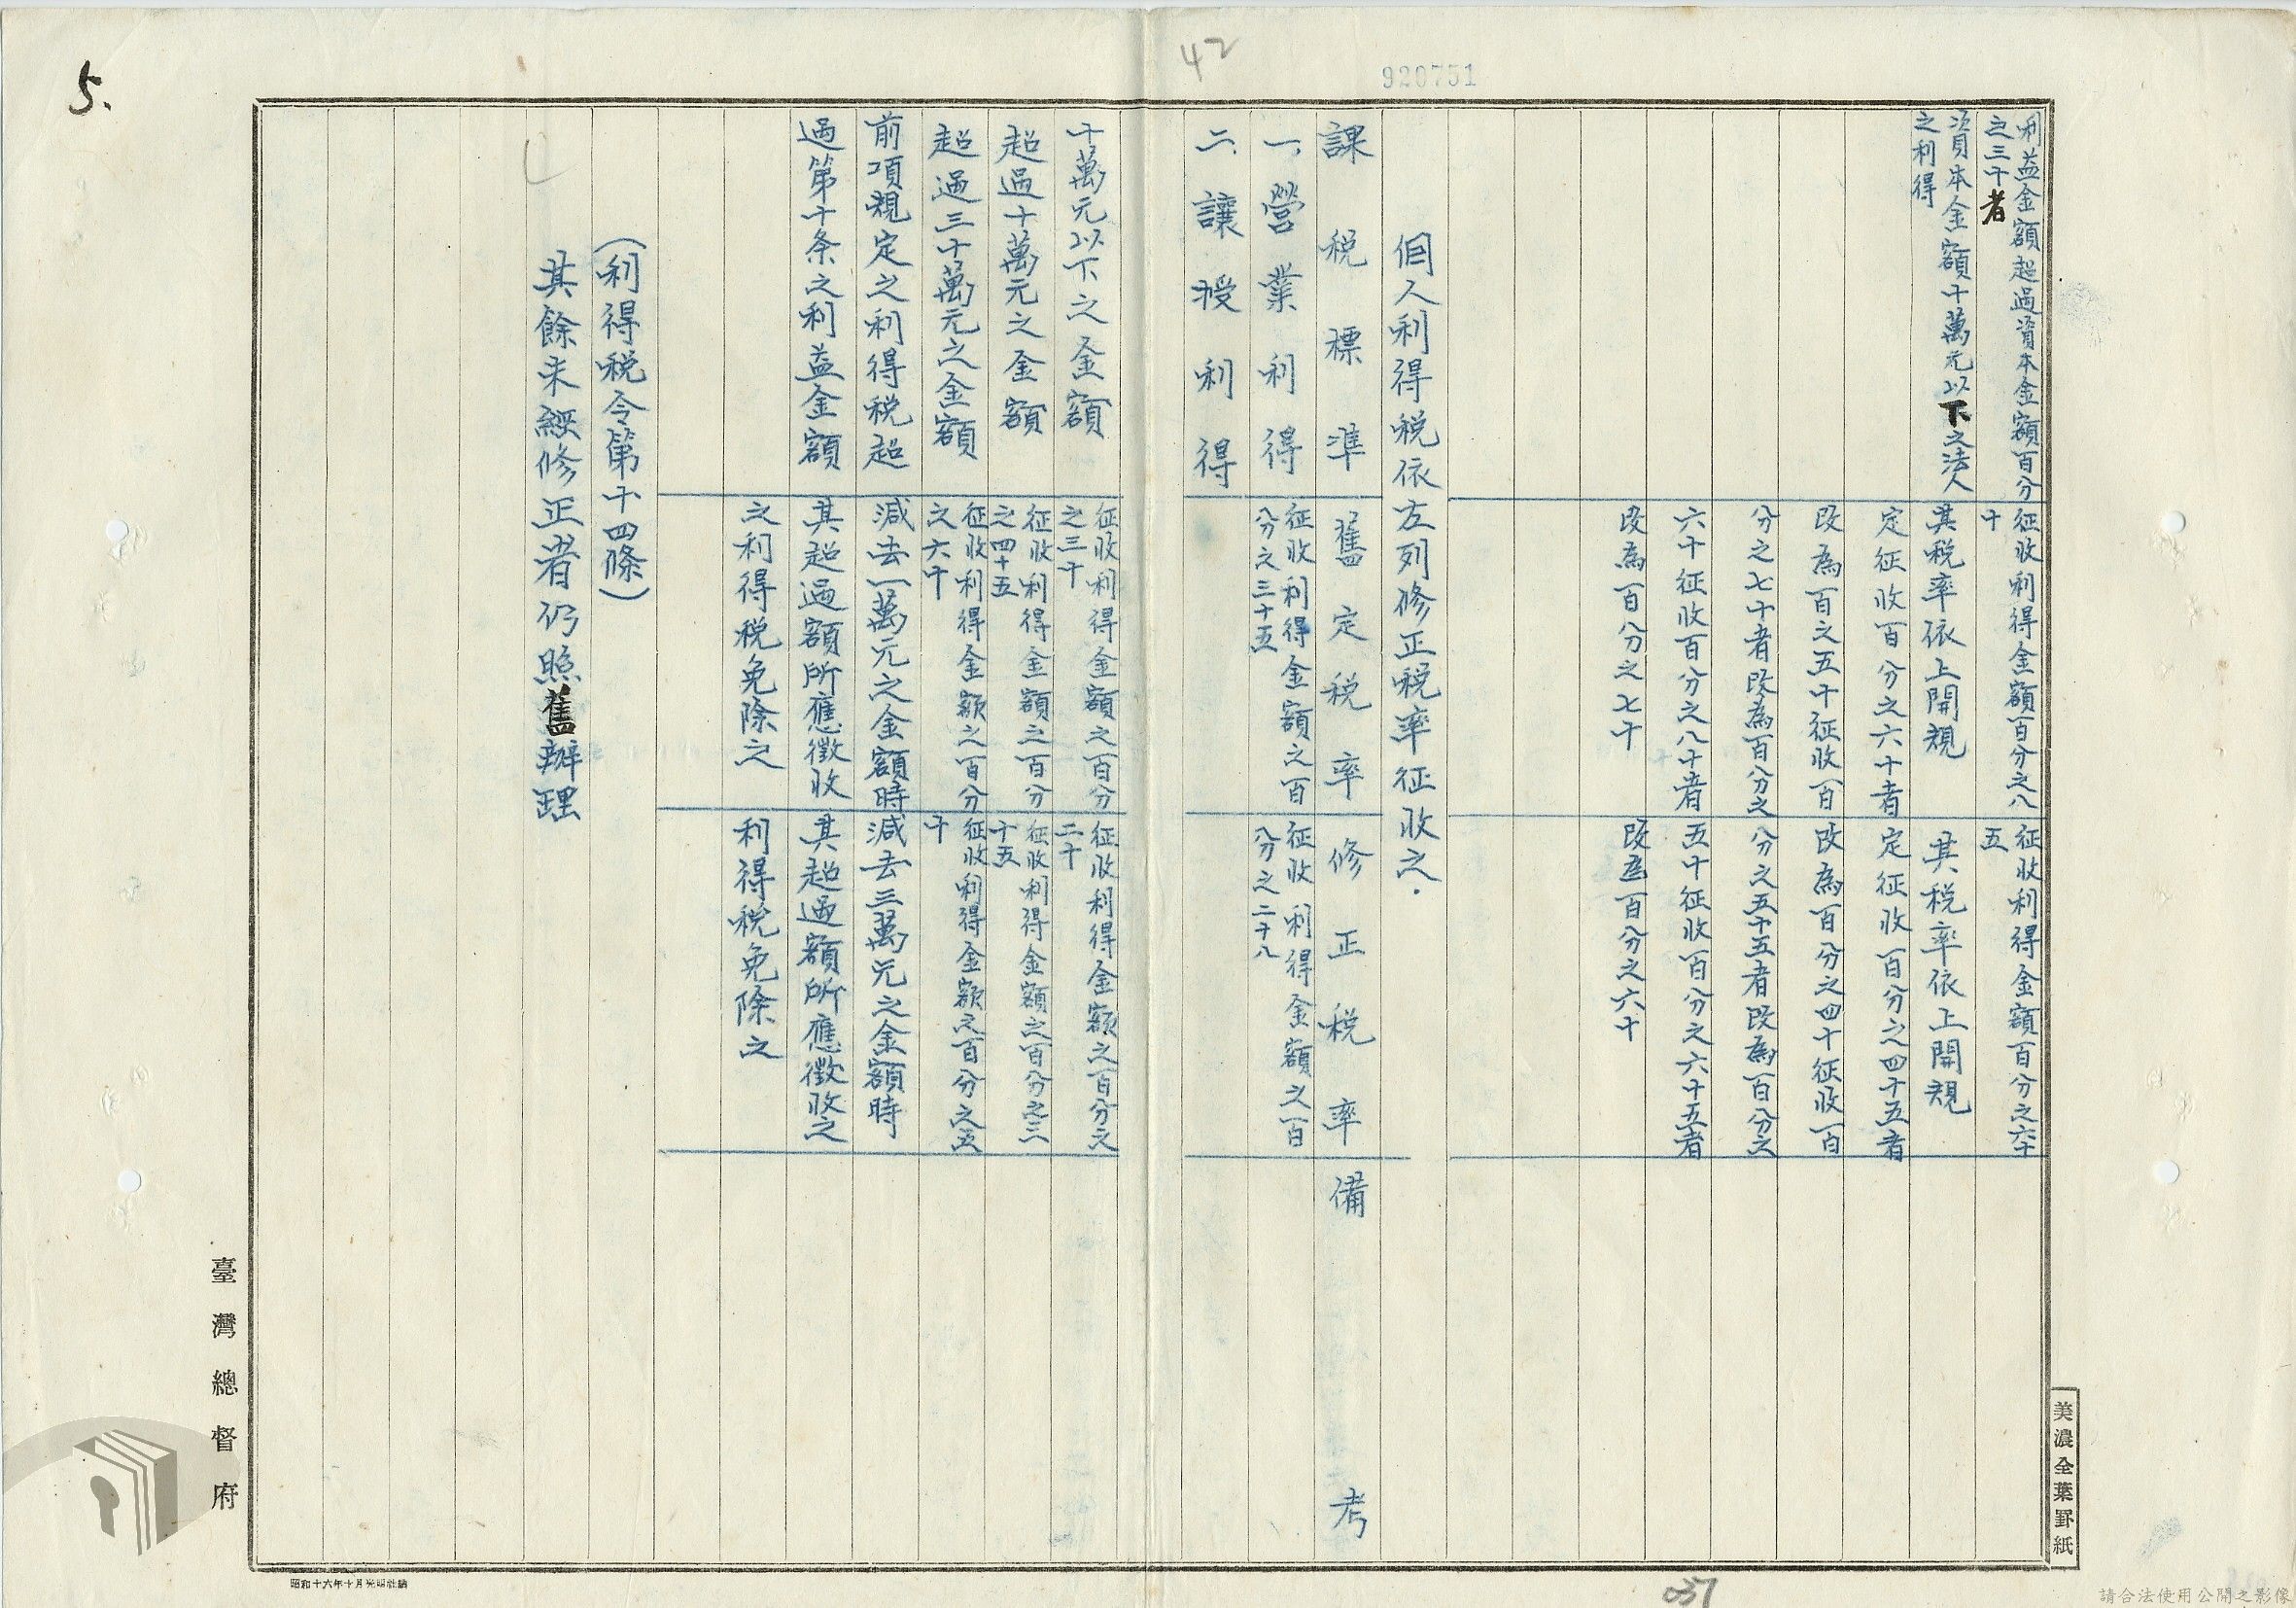 5.
42
920751
利益金額超過資本金額百分
之三十者
征收利得金額百分之八
十
征收利得金額百分之六十
五
資本金額十萬元以下之法人
之利得
其税率依上開規
定征收百分之六十者
改為百之五十征收百
分之七十者改為百分之
六十征收百分之八十者
改為百分之七十
其税率依上開規
定征收百分之四十五者
改為百分之四十征收百
分之五十五者改為百分之
五十征收百分之六十五者
改為百分之六十
個人利得税依左列修正税率征收之.
課税標準
舊定税率
修正税率
備考
一、營業利得
征收利得金額之百
分之三十五
征收利得金額之百
分之二十八
二、讓授利得
十萬元以下之金額
征收利得金額之百分
之三十
征收利得金額之百分之
二十
超過十萬元之金額
征收利得金額之百分
之四十五
征收利得金額之百分之三
十五
超過三十萬元之金額
征收利得金額之百分
之六十
征收利得金額之百分之五
十
前項規定之利得税超
過第十条之利益金額
減去一萬元之金額時
其超過額所應徵收
之利得税免除之
減去三萬元之金額時
其超過額所應徵收之
利得税免除之
(利得税令第十四條)
其餘未經修正者仍照舊辦理
臺灣總督府
美濃全葉罫紙
昭和十六年十月光明社納
037
請合法使用公開之影像